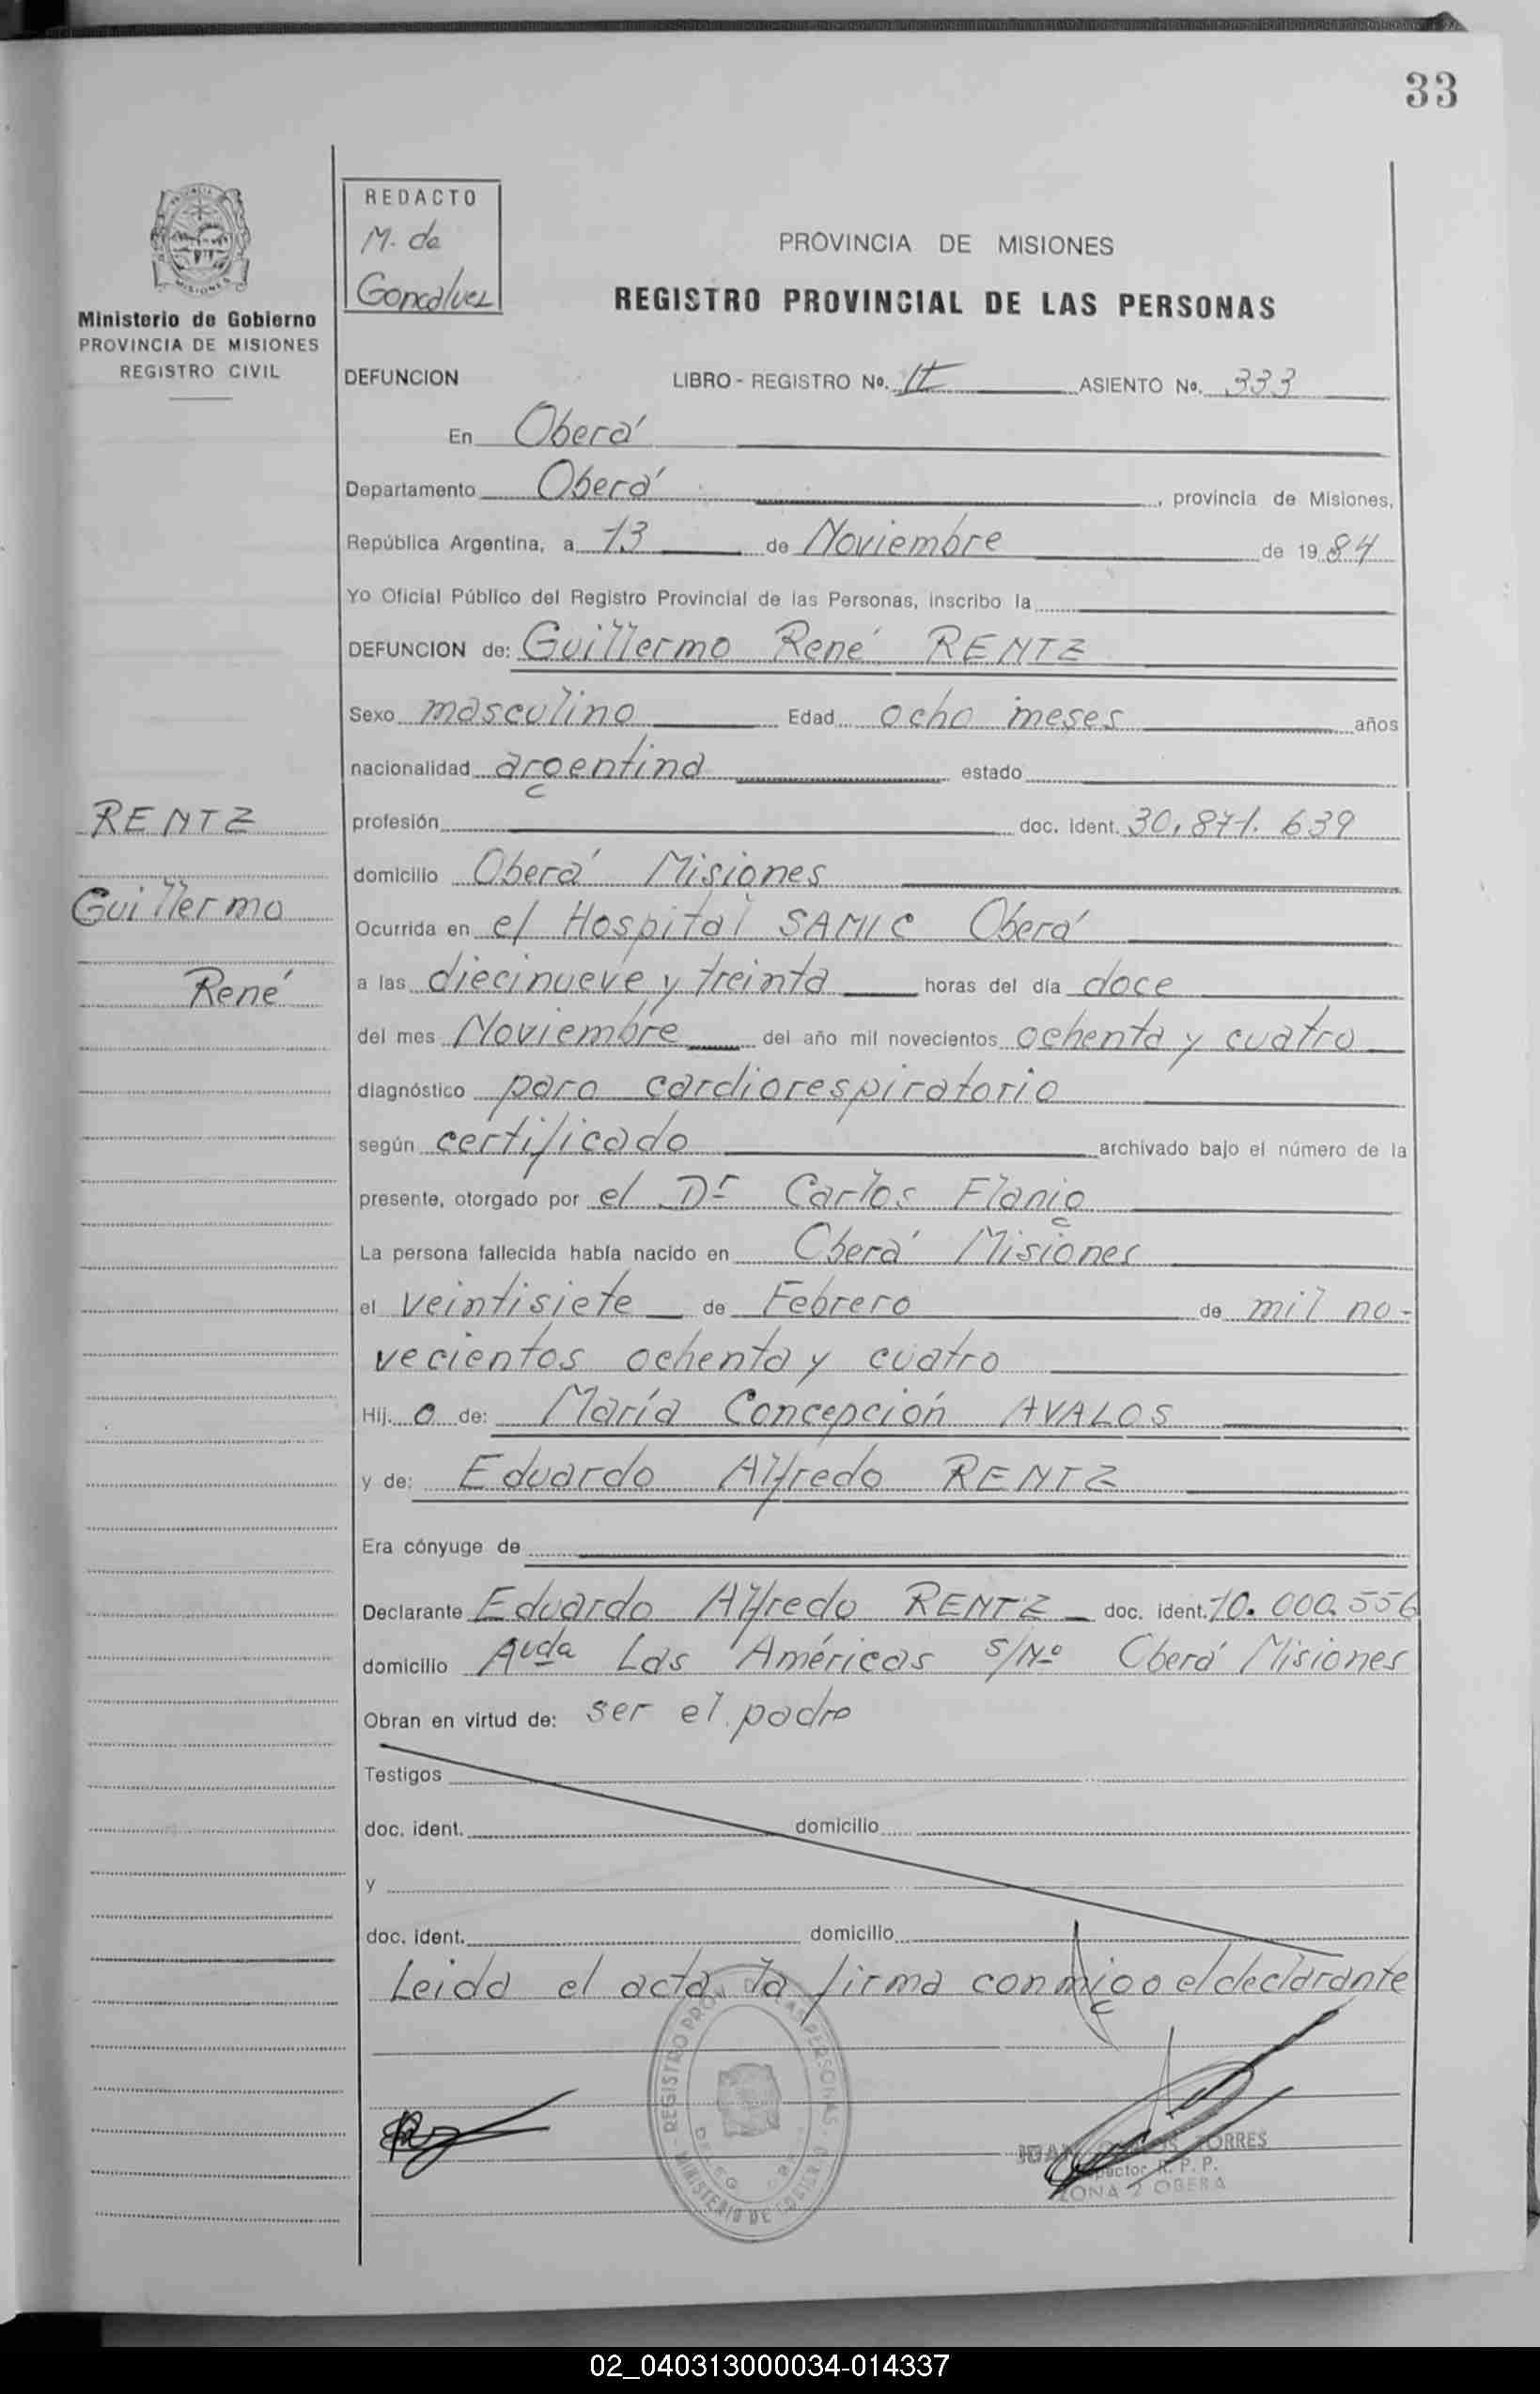 33
REDACTO
M. de
Goncalvez
PROVINCIA DE MISIONES
REGISTRO PROVINCIAL DE LAS PERSONAS
Ministerio de Gobierno
PROVINCIA DE MISIONES
REGISTRO CIVIL
DEFUNCION LIBRO - REGISTRO Nº. II ASIENTO Nº. 333
En Oberá
Departamento Oberá, provincia de Misiones,
República Argentina, a 13 de Noviembre de 1984
Yo Oficial Público del Registro Provincial de las Personas, inscribo la
DEFUNCION de: Guillermo René RENTZ
Sexo masculino Edad ocho meses años
nacionalidad argentina estado
RENTZ
Guillermo
René
profesión doc. ident. 30.871.639
domicilio Oberá Misiones
Ocurrida en el Hospital SAMIC Oberá
a las diecinueve y treinta horas del día doce
del mes Noviembre del año mil novecientos ochenta y cuatro
diagnóstico paro cardiorespiratorio
según certificado archivado bajo el número de la
presente, otorgado por el Dr Carlos
La persona fallecida había nacido en Oberá Misiones
el veintisiete de Febrero de mil no-
vecientos ochenta y cuatro
Hij. o de: María Concepción AVALOS
y de: Eduardo Alfredo RENTZ
Era cónyuge de
Declarante Eduardo Alfredo RENTZ doc. ident. 10.000.556
domicilio Avda Las Américas s/Nº Oberá Misiones
Obran en virtud de: ser el padre
Testigos
doc. ident. domicilio
y
doc. ident. domicilio
Leida el acta, la firma conmigo el declarante
REGISTRO PROV. DE LAS PERSONAS
MINISTERIO DE
JUAN TORRES
R. P. P.
ZONA 2 OBERA
02_040313000034-014337